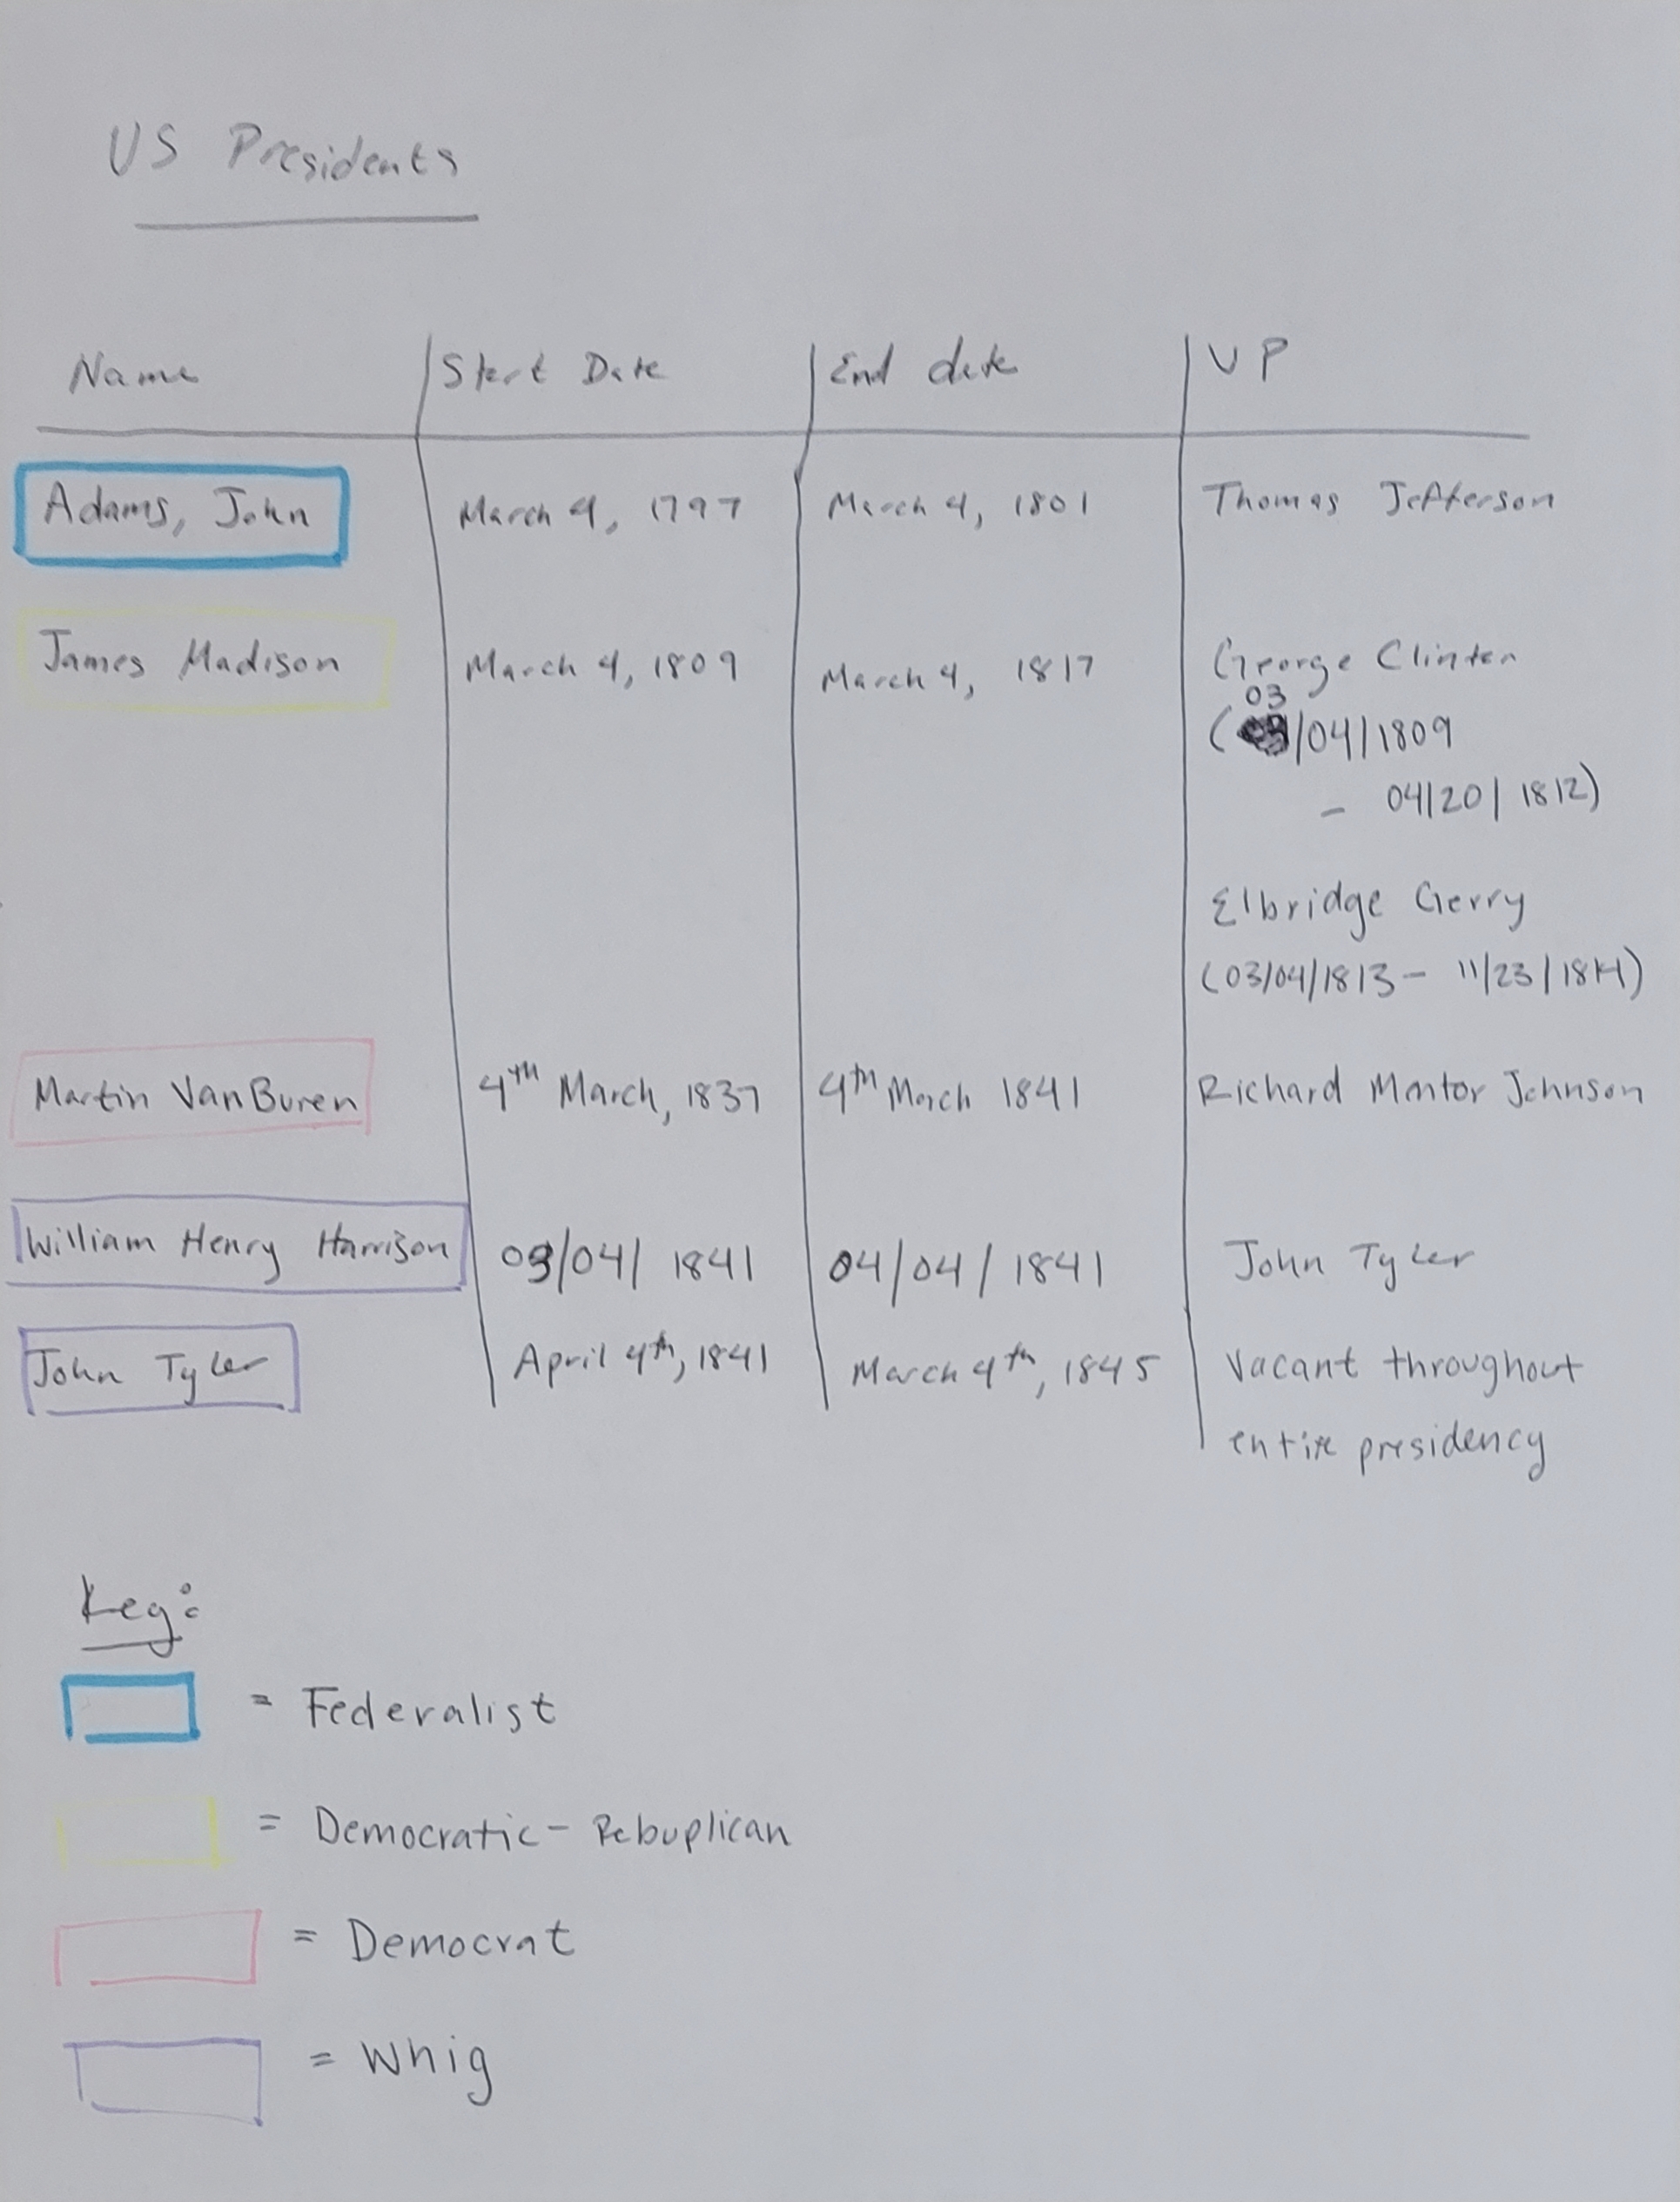 US Presidents
Name Start Date End date VP
Adams, John March 4, 1797 March 4, 1801 Thomas Jefferson
James Madison March 4, 1809 March 4, 1817 George Clinton
03
( /04/1809
- 04/20/1812)
Elbridge Gerry
(03/04/1813 - 11/23/1814)
Martin Van Buren 4th March, 1837 4th March 1841 Richard Mentor Johnson
William Henry Harrison 03/04/1841 04/04/1841 John Tyler
John Tyler April 4th, 1841 March 4th, 1845 Vacant throughout
entire presidency
Key:
= Federalist
= Democratic-Rebuplican
= Democrat
= Whig